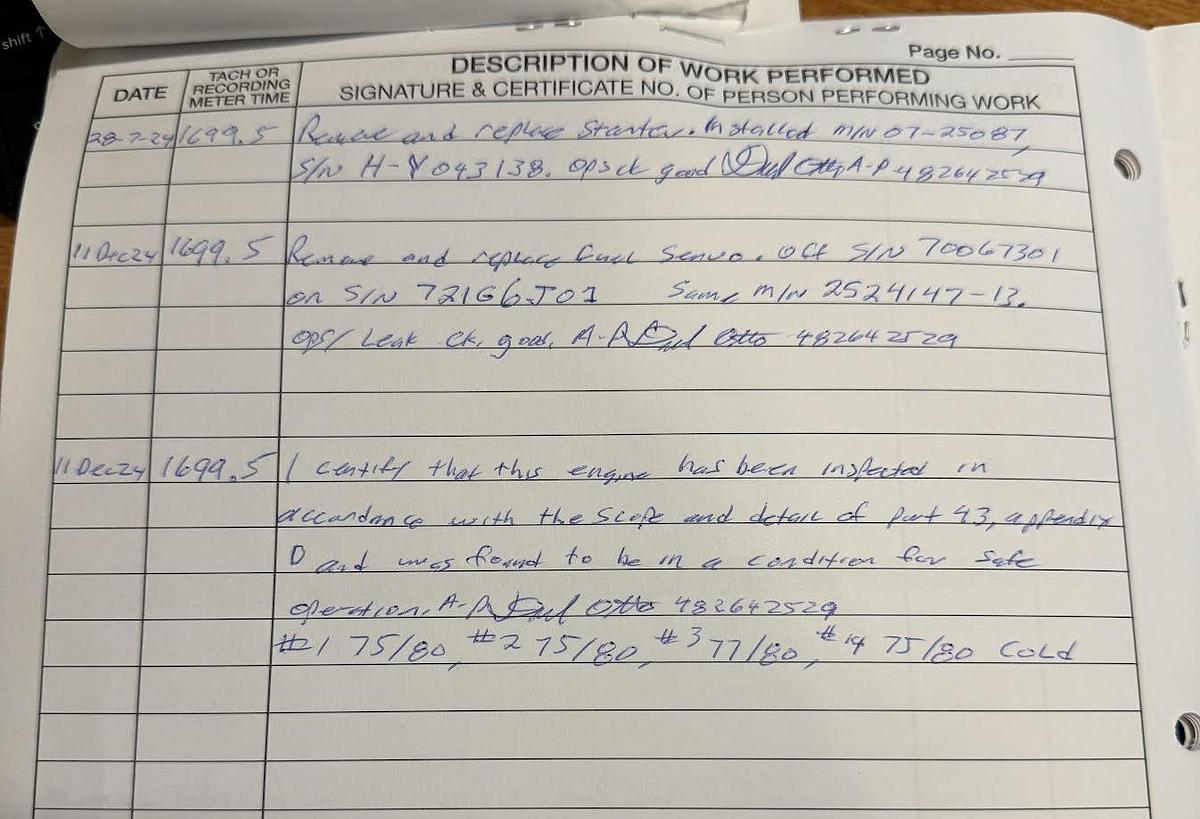 shift
Page No.
DATE
TACH OR RECORDING METER TIME
DESCRIPTION OF WORK PERFORMED
SIGNATURE & CERTIFICATE NO. OF PERSON PERFORMING WORK
28-7-24 1699.5 Remove and replace Starter. Installed m/N 07-25087,
S/N H-Y043138. ops ck good Otto A-P 482642529
11 Dec 24 1699.5 Remove and replace fuel Servo. Off S/N 70067301
on S/N 72166J01 Same m/N 2524147-13.
ops/ Leak ck. good. A-P Otto 482642529
11 Dec 24 1699.5 I certify that this engine has been inspected in
accordance with the scope and detail of part 43, appendix
D and was found to be in a condition for safe
operation. A-P Otto 482642529
#1 75/80, #2 75/80, #3 77/80, #4 75/80 COLD